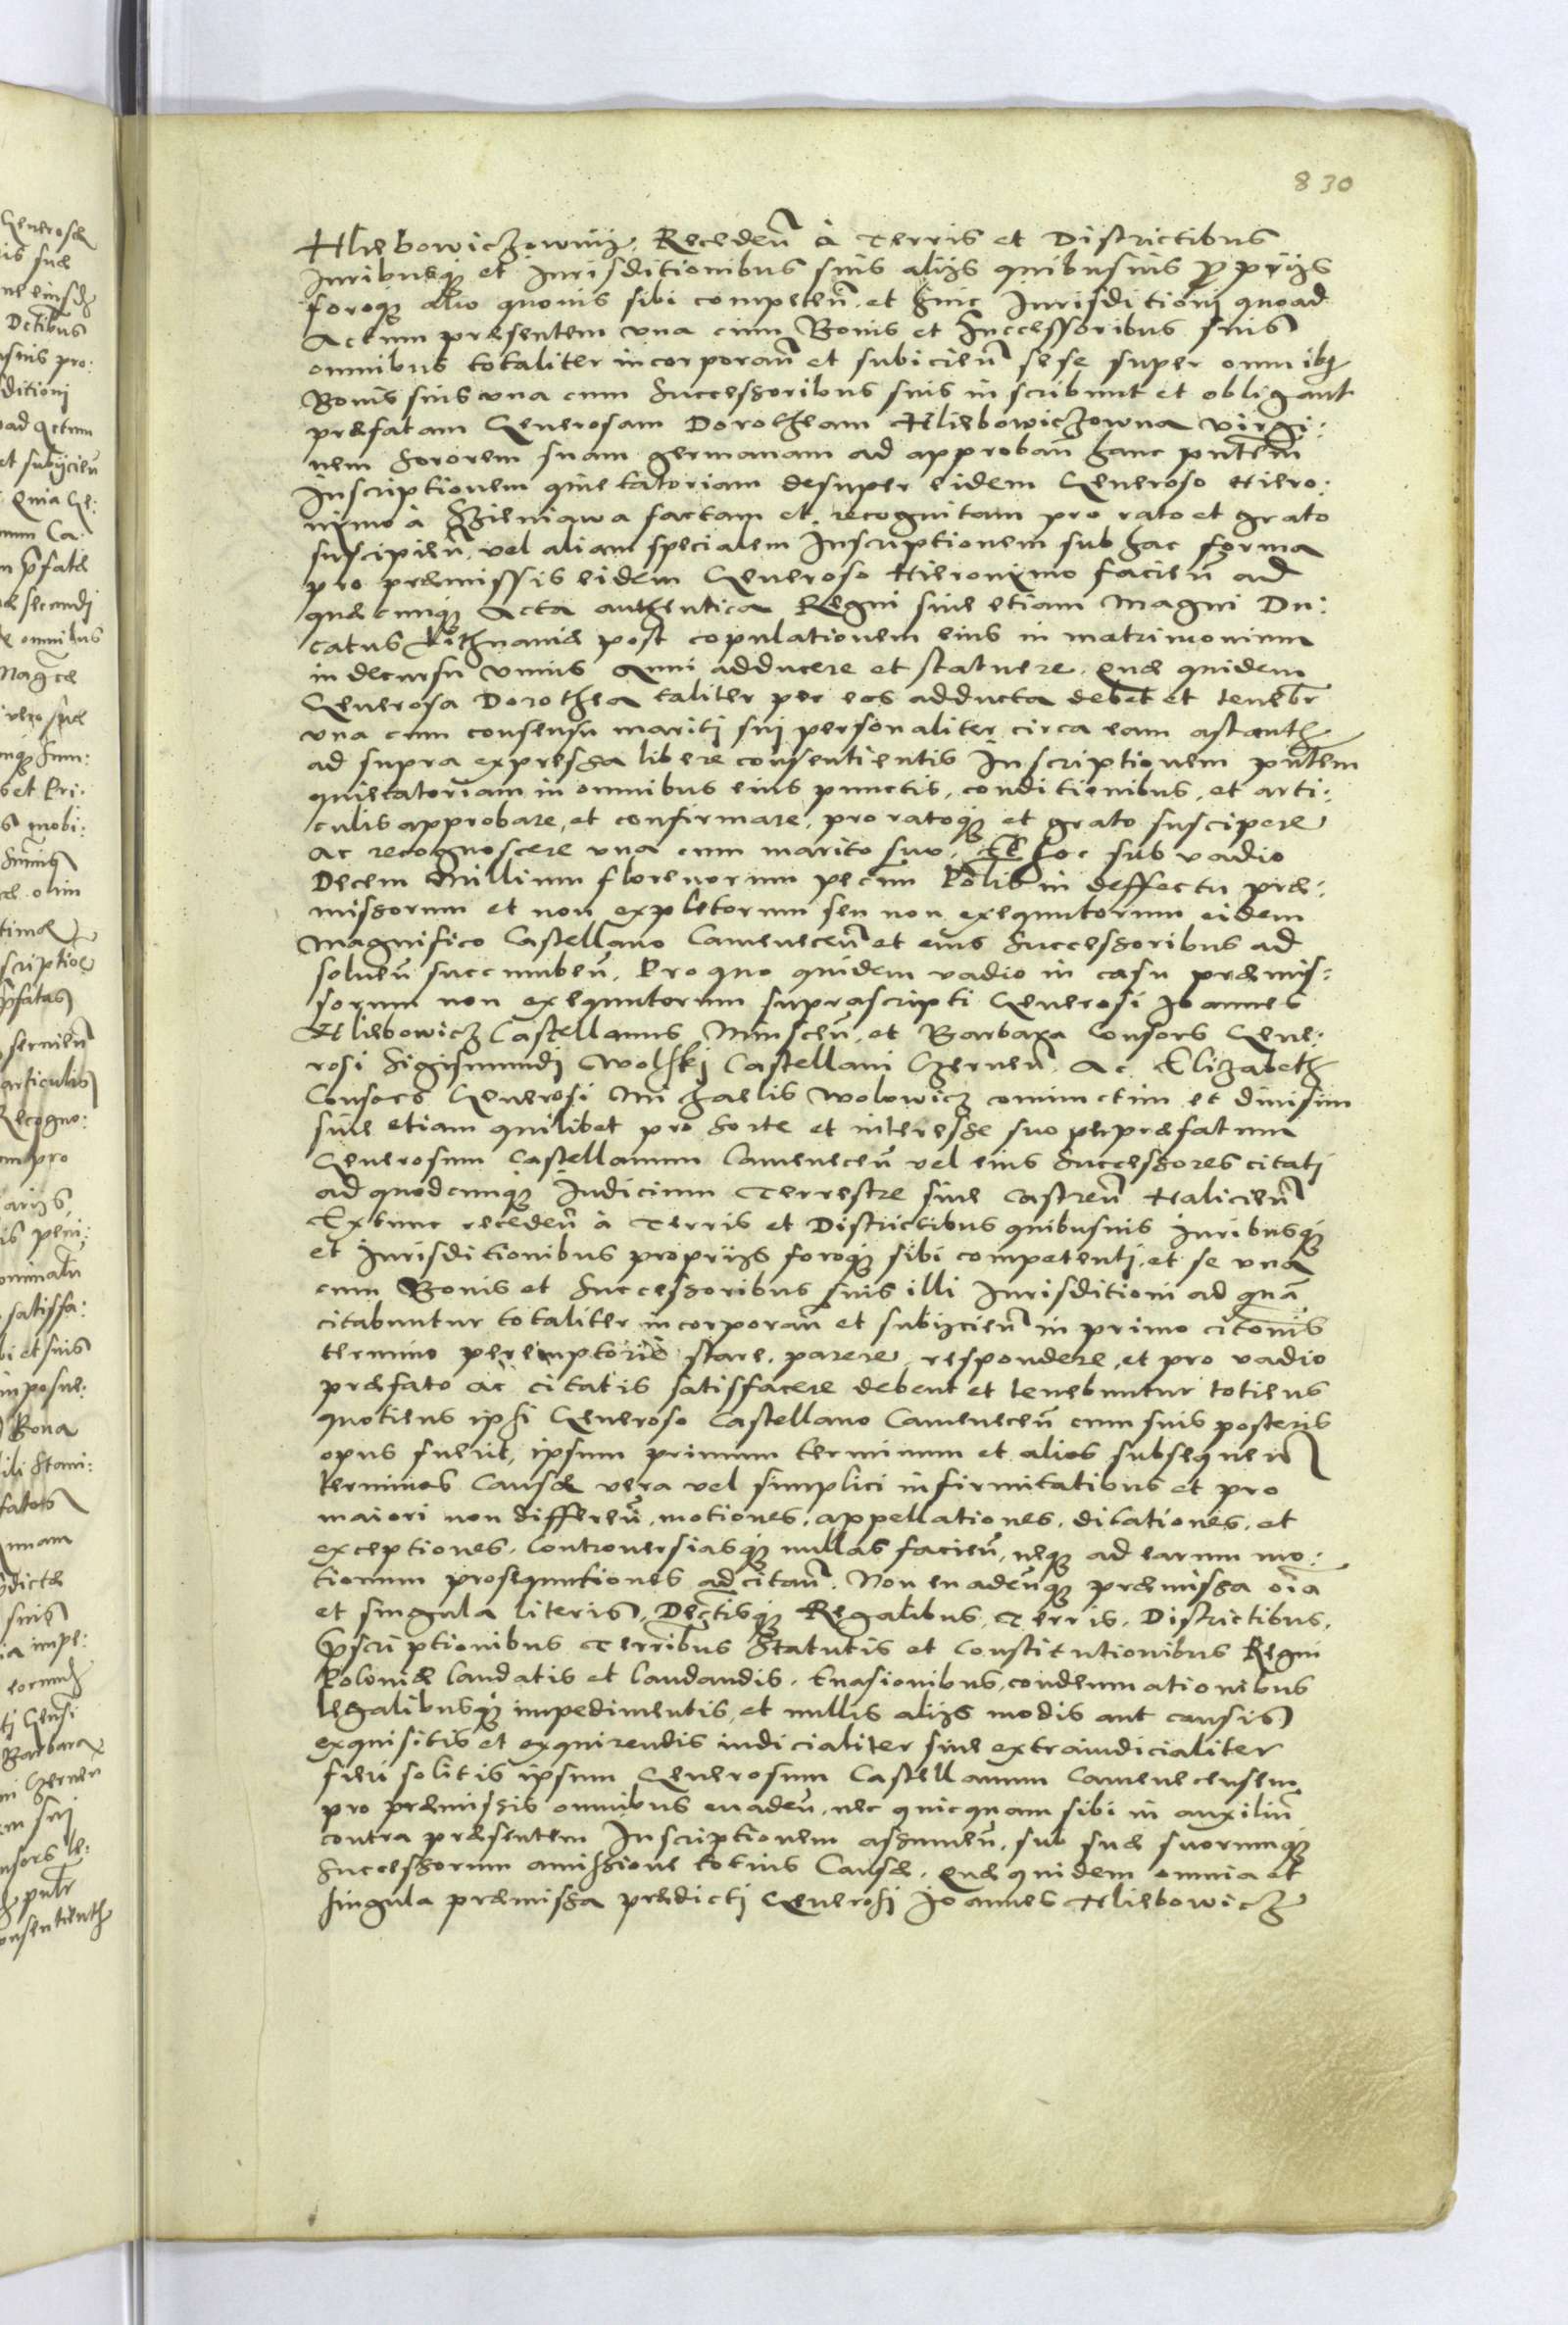 830
Hliebowiczowniz, Recedeñ à Terris et Districtibus
Iuribusq; et Iurisditionibus suis alijs quibusuis proprijs
foroq; alio quouis sibi competeñ, et huic Iurisditionj quoad
Actum præsentem vna cum Bonis et Successoribus suis
omnibus totaliter incorporañ et subicieñ sese super omnibq
Bonis suis vna cum Successoribus suis inscribunt et obligant
præfatam Generosam Dorotheam Hliebowiczowna virgi:
nem Sororem suam germanam ad approbañ hanc pñtem
Inscriptionem quietatoriam desuper eidem Generoso Hiero:
nimo à Szieniawa factam et recognitam pro rato et grato
suscipieñ, vel aliam specialem Inscriptionem sub hac forma
pro præmissis eidem Generoso Hieronimo facieñ ad
quæcumq; Acta authentica Regni siue etiam Magni Du:
catus Lithuaniæ post copulationem eius in matrimonium
in decursu vnius Anni adducere et statuere. Quæ quidem
Generosa Dorothea taliter per eos adducta debet et tenebr
vna cum consensu maritj sui personaliter circa eam astanth
ad supra expressa libere consentientis Inscriptionem pñtem
quietatoriam in omnibus eius punctis, conditionibus, et arti:
culis approbare, et confirmare, pro ratoq; et grato suscipere
ac recognoscere vna cum marito suo. Et hoc sub vadio
Decem Millium florenorum pecun Polis in deffectu præ:
missorum et non expletorum seu non exequutorum eidem
Magnifico Castellano Cameneceñ et eius Successoribus ad
solueñ succumbeñ. Pro quo quidem vadio in casu præmis:
sorum non exequutorum suprascripti Generosi Ioannes
Hliebowicz Castellanus Minsceñ, et Barbara Consors Gene:
rosi Sigismundj Wolskj Castellani Czerneñ. Ac Elizabeth
Consors Generosi Michaelis Wolowicz coniunctim et diuisim
siue etiam quilibet pro sorte et interesse suo per præfatum
Generosum Castellanum Cameneceñ vel eius Successores citatj
ad quodcumq; Iudicium Terrestre siue Castreñ Halicieñ
Extunc recedeñ à Terris et Districtibus quibusuis Iuribusq;
et Iurisditionibus proprijs foroq; sibi competentj, et se vna
cum Bonis et Successoribus suis illi Iurisditioni ad quã
citabuntur totaliter incorporañ et subijcieñ in primo citõnis
termino peremptoriè stare, parere, respondere, et pro vadio
præfato ac citatis satisfacere debent et tenebuntur totiens
quotiens ipsi Generoso Castellano Cameneceñ cum suis posteris
opus fuerit, ipsum primum terminum et alios subsequeñ
terminos Causæ vera vel simplici infirmitatibus et pro
maiori non differeñ, motiones, appellationes, dilationes, et
exceptiones, Controuersiasq; nullas facieñ, neq; ad earum mo:
tionum prosequutiones ad citañ. Non euadeñq; præmissa oĩa
et singula literis, Dectisq; Regalibus, Terris, Districtibus,
Pscriptionibus Terribus Statutis et Constitutionibus Regni
Poloniæ laudatis et laudandis. Euasionibus, condemnationibus
legalibusq; impedimentis, et nullis alijs modis aut causis
exquisitis et exquirendis iudicialiter siue extraiudicialiter
fieri solitis ipsum Generosum Castellanum Camenecensem
pro præmissis omnibus euadeñ, nec quicquam sibi in auxiliũ
contra præsentem Inscriptionem assumeñ, sub suæ suorumq;
Successorum amissione totius Causæ. Quæ quidem omnia et
singula præmissa prædictj Generosi Ioannes Hliebowicz